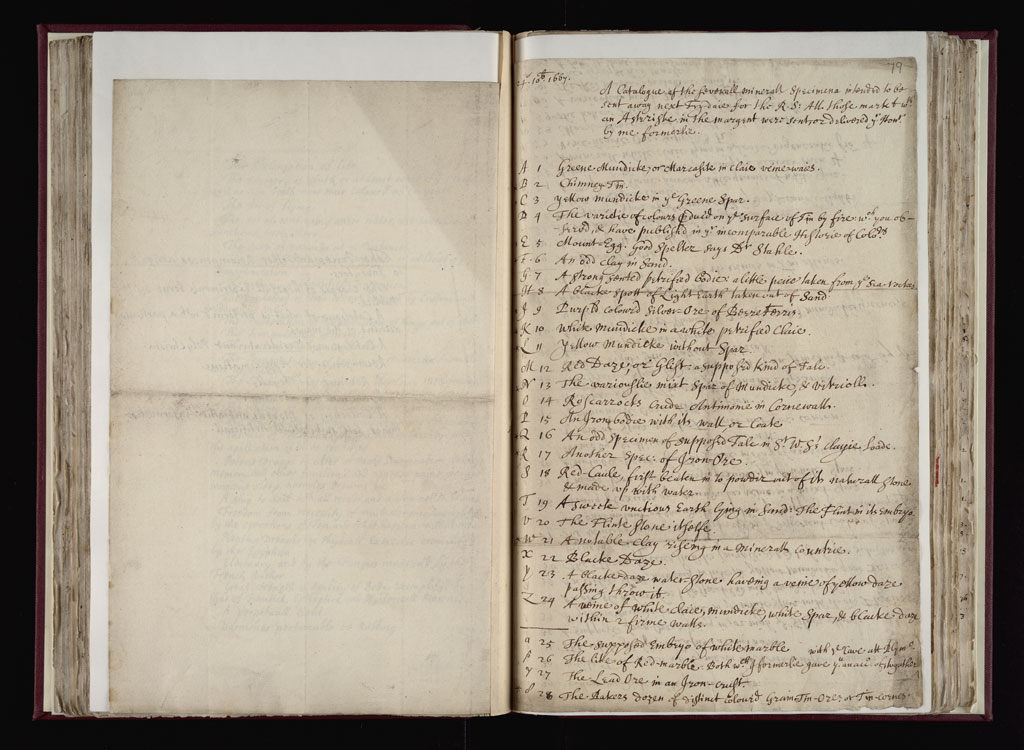 10b 1667.
79
A Catalogue of the severall minerall Specimena intended to be
sent away next Frydaie for the R. S: All those markt wth
an Astriske in the margent were sent, or delivered yr Honr
by me formerlie.
A 1 Greene Mundicke, or Marcasite in claie veine-waies.
B 2 Chimney-Tin.
C 3 yellow mundicke in ye Greene Spar.
D 4 The varietie of colours on ye surface of Tin by fire, wch you ob-
serve, & have published in yr incomparable Historie of Colors
E 5 Mount-Egg: Good Spelter says Dr Stahle.
F 6 An odd clay in Sand.
G 7 A strong sented petrified bodie a little peice taken from ye Sea-rockes
H 8 A blacke spott of Light Earth taken out of Sand
J 9 Purpld colourd Silver-Ore of
K 10 White Mundicke in a white petrified Claie.
L 11 Yellow Mundicke without Spar.
M 12 Red Daze, or Glist: a supposed kind of Talc.
N 13 The variouslie mixt Spar of Mundicke, & vitrioll.
O 14 Roscarrocks Crude Antimonie in Cornewall.
P 15 An Iron-bodie with its wall or Coate
Q 16 An odd Specimen of supposed Talc in Sr W. Ss clayie Loade.
R 17 Another Spec: of Iron Ore.
S 18 Red-Caule, first beaten in to powder out of its naturall stone
& made up with water.
T 19 A sweete unctious Earth lying in Sand: The Flint in its Embryo
V 20 The Flint stone itselfe
W 21 A notable clay riseing in a Minerall countrie.
X 22 Blacke Daze
Y 23 A blacke daze water-stone haveing a veine of yellow daze
passing throw it
Z 24 A veine of white claie, mundicke, white Spar, & blacke daze
within 2 firme walls.
α 25 The supposed Embryo of white marble with ye Cave att
β 26 The like of Red-marble. Both wch I formerlie gave yu an acc: of
γ 27 The Lead Ore in an Iron-crust
δ 28 The Bakers dozen of distinct colourd Grain Tin-Ores or Tin-cornes